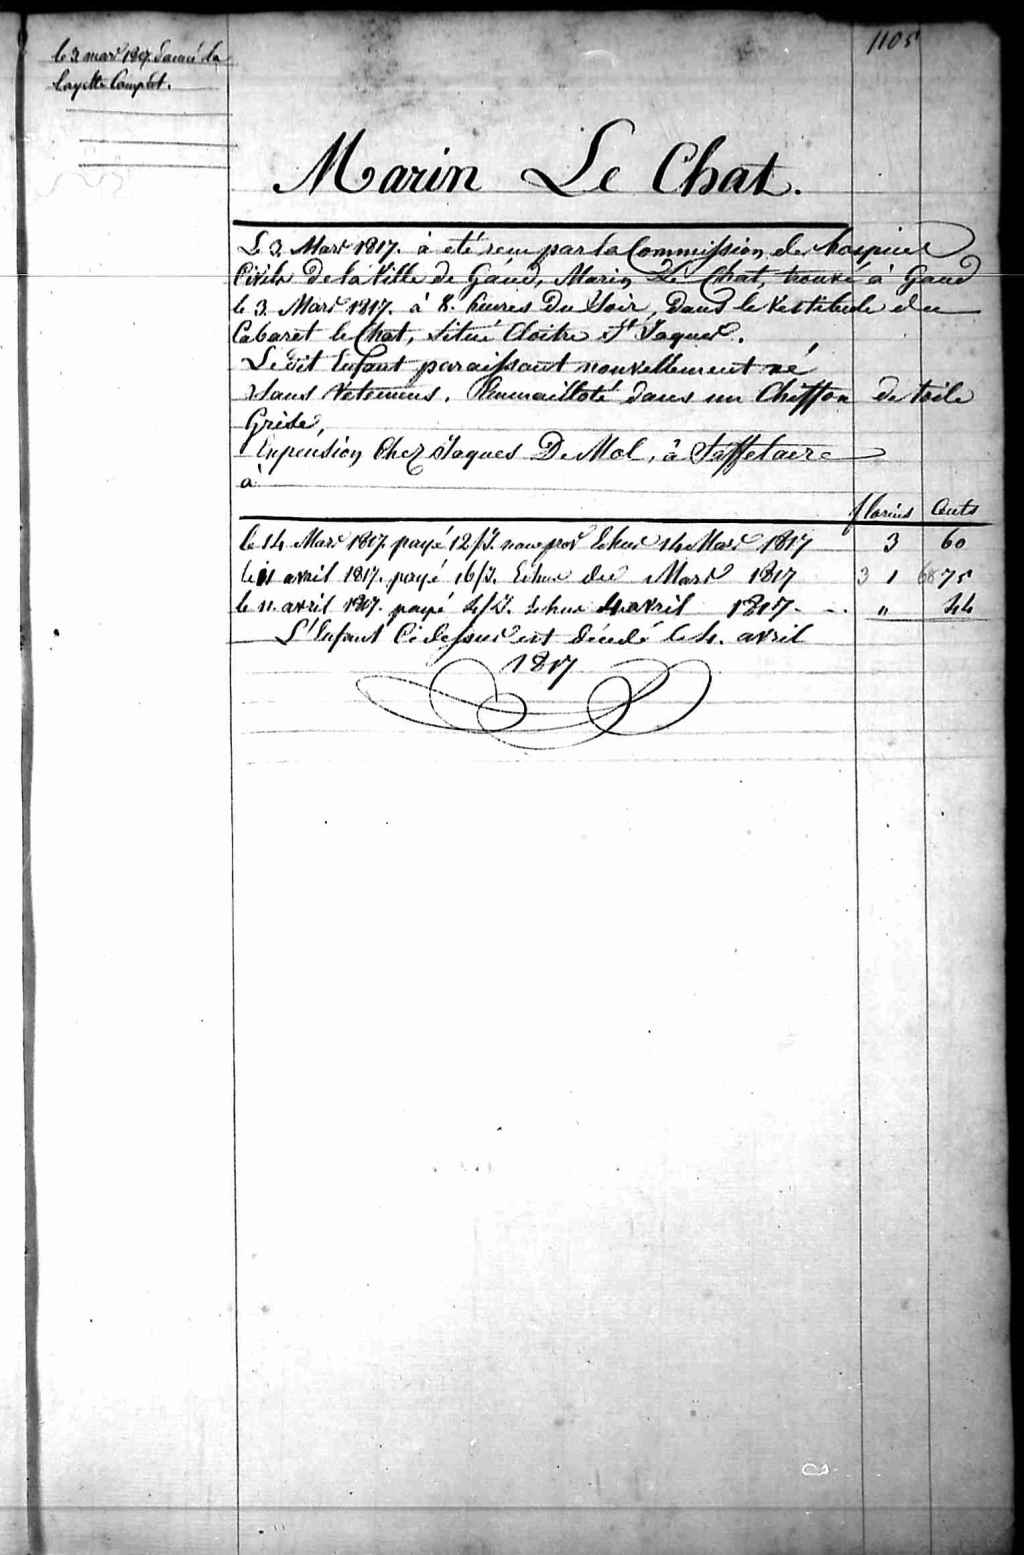 1105
le 3 mars 1817. Donné la
layette Complet.
Marin Le Chat.
Le 3. Mars 1817. à eté reçu par la Commission des hospices
Civils de la Ville de Gand, Marin Le Chat, trouvé à Gand
le 3. Mars 1817. à 8. heures Du Soir, Dans le Vestibule du
Cabaret le Chat, Situé Cloitre St Jaques.
Le dit Enfant paraissant nouvellement né
Sans Vetemens. Emmailloté dans un Chiffon de toile
Grise,
En pension Chez Jaques De Mol, à Saffelaere
à
florins Cents
le 14 Mars 1817. payé 12/J. nour Echus 14 Mars 1817 3 60
le 11 avril 1817. payé 16/J. Echus de Mars 1817 1 75
le 11. avril 1817. payé 4/J. Echus 4 avril 1817 - .. " 44
L'Enfant Ci dessus est décedé le 4. avril
1817